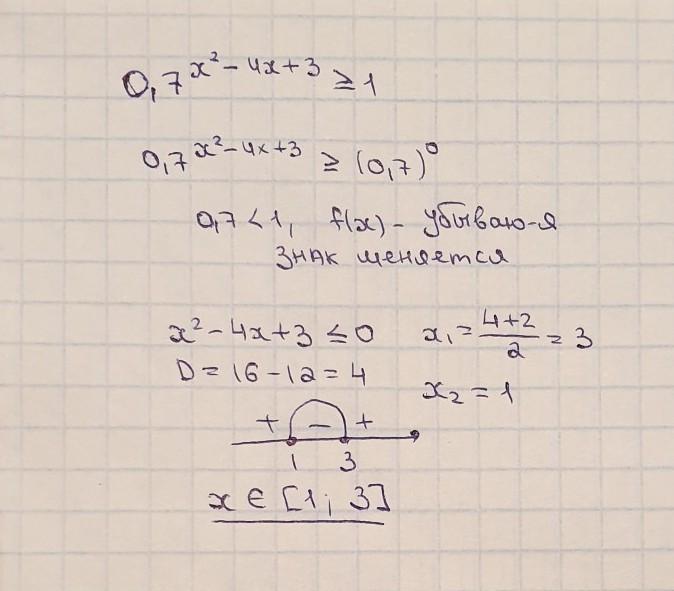 0,7^{x²-4x+3} ≥ 1
0,7^{x²-4x+3} ≥ (0,7)^0
0,7 < 1, f(x) - убываю-я
знак меняется
x² - 4x + 3 ≤ 0 x₁ = \frac{4+2}{2} = 3
D = 16 - 12 = 4
x₂ = 1
+ - +
1 3
x ∈ [1; 3]